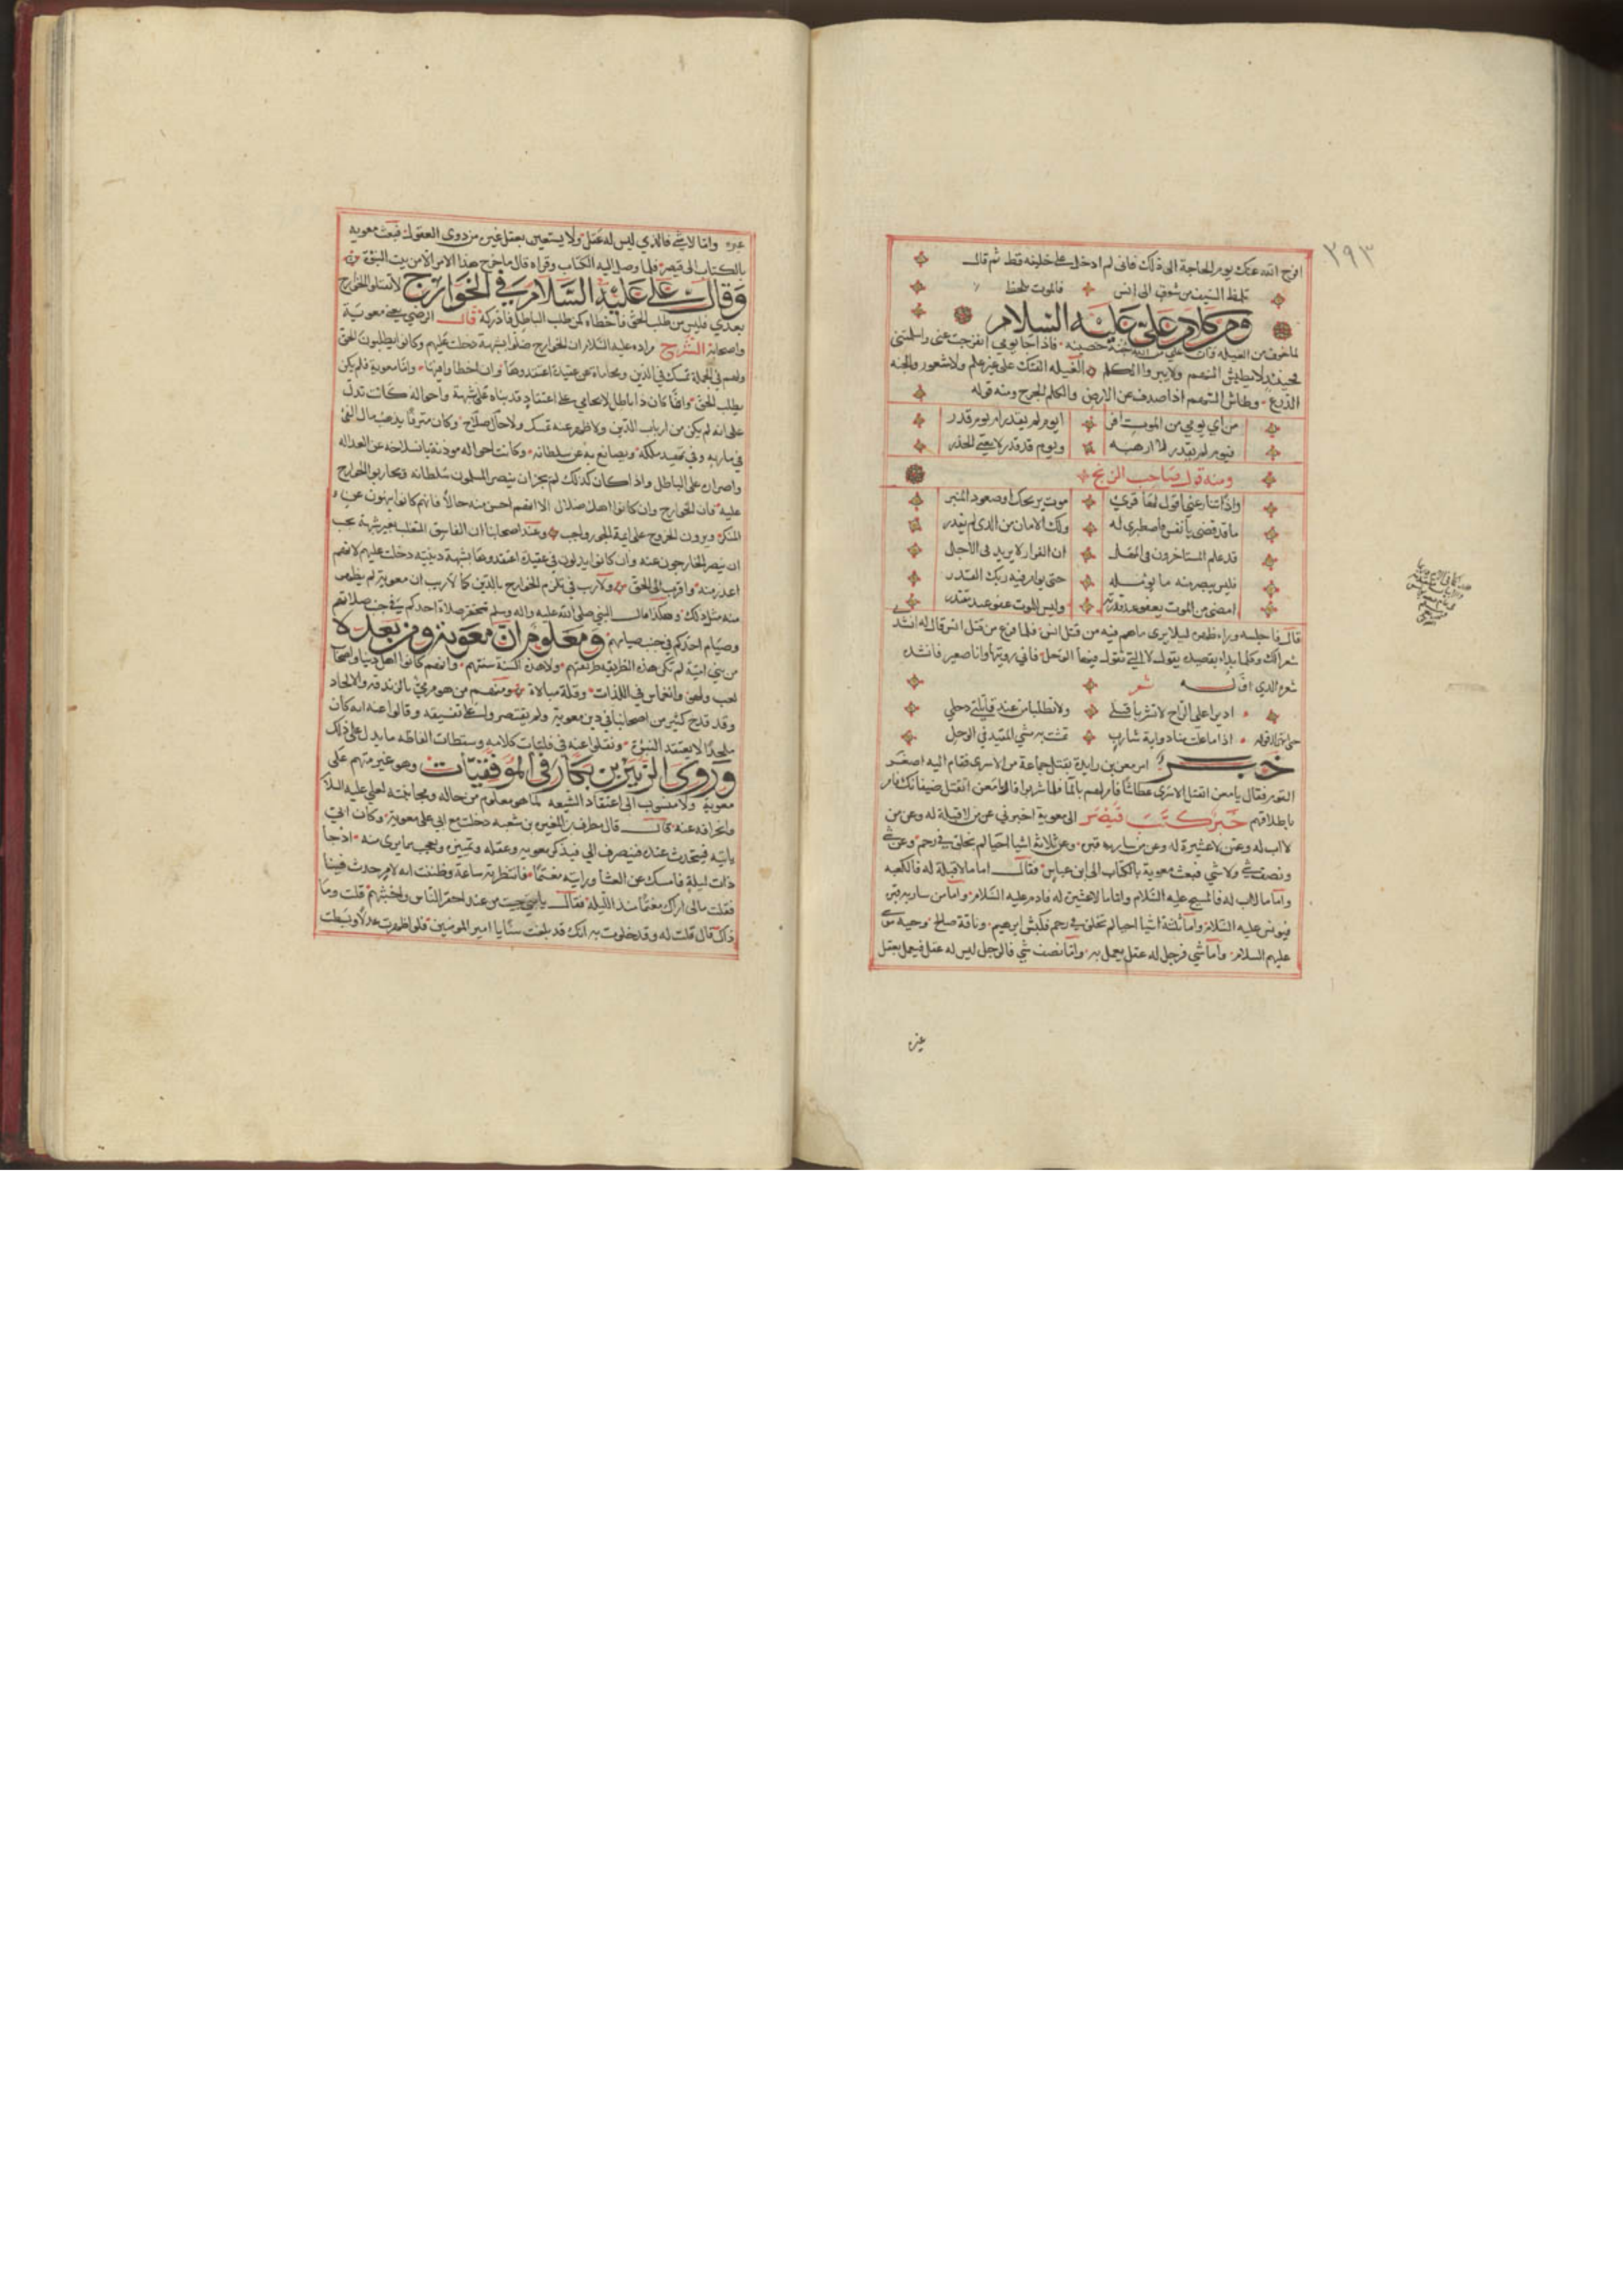 ٢٩٣
افرج الله عنك يوم الحاجة الى ذلك فانى لم ادخل على خليفه قط ثم قال
تلمظ السيف من شوق الى انس فالموت يلحظ
ومن كلام على عليه السلام
لما خوف من الغيله وان علي من الله جنة حصينه فاذا جا يومي انفرجت عنى واسلمتنى
فحينئذ لا يطيش السهم ولا يبرا الكلم الغيله القتك على غير علم ولا شعور والجنه
الدرع وطاش السهم اذا صدف عن الارض والكلم الجرح ومنه قوله
من اي يومي من الموت افر ايوم لم يقدر ام يوم قدر
فيوم لم يقدر لا ارهبه ويوم قد قدر لا يغني الحذر
ومنه قول صاحب الزنج
واذا تنازعني اقول لها قري موت يريحك او صعود المنبر
ما قد قضى يا نفس فاصطبرى له ولك الامان من الذى لم يقدر
قد علم المستاخرون فى المقل ان الفرار لا يزيد فى الاجل
فليس يبصر منه ما يومله حتى يوافيه ريك القدر
امضى من الموت يعفو عند قدرته وليس للموت عفو عند يقتدر
قال فاجلسه وراء ظهره ليلا يرى ما هم فيه من قتل انس فلما فرغ من قتل انس قال له انشد
شعرالك وكلما بداء بقصيده يقول لا التي تقول فيها الوحل فاني رويتها وانا صغير فانشده
شعره الذي اوله شعر
اديرا على الراح لا تشربا قبلى ولا تطلبا من عند قاتلتى دحلي
حتى انتهى الى قوله اذا ما علت منا ذوابة شارب تمشت به مشي المقيد في الوحل
خبر امر معن بن زايدة بقتل جماعة من الاسرى فقام اليه اصغر
القوم فقال يا معن اتقتل الاسرى عطاشا فامر لهم بالما فلما شربوا قالوا يا معن اتقتل ضيفانك فامر
باطلاقهم خبر كتب قيصر الى معوية اخبرني عن من لا قبلة له وعن من
لا اب له وعن من لا عشيرة له وعن من سار به قبره وعن ثلاثة اشيا احيا لم تخلق في رحم وعن شي
ونصف شي ولا شي فبعث معوية بالكتاب الى ابن عباس فقال اما ما لا قبلة له فالكعبه
واما ما لا اب له فالمسيح عليه السلام واما ما لا عشيرة له فادم عليه السلام واما من سار به قبره
فيونس عليه السلام واما ثلثة اشيا احيا لم تخلق في رحم فكبش ابرهيم وناقة صالح وحية موسى
عليهم السلام واما شي فرجل له عقل يعمل به واما نصف شي فالرجل ليس له عقل فيعمل بعقل
غيره
غيره واما لا شي فالذي ليس له عقل ولا يستعين بعقل غيره من ذوى العقول فبعث معويه
بالكتاب الى قيصر فلما وصل اليه الكتاب وقراه قال ما خرج هذا الامر الا من بيت النبوة
وقال على عليه السلام في الخوارج لا تقتلوا الخوارج
بعدي فليس من طلب الحق فاخطاه كمن طلب الباطل فادركه قال الرضي يعني معوية
واصحابه الشرح مراده عليه السلام ان الخوارج ضلوا بشبهة دخلت عليهم وكانوا يطلبون الحق
ولهم في الجملة تمسك في الدين ومحاماة عن عقيدة اعتقدوها وان اخطاوا فيها واما معوية فلم يكن
يطلب الحق وانما كان ذا باطل لا يحامي على اعتقاد قد بناه على شبهة واحواله كانت تدل
على انه لم يكن من ارباب الدين ولا ظهر عنه نسك ولا حال صلاح وكان مترفا يذهب مال الفى
في ماربه وفي تمهيد ملكه ويصانع به عن سلطانه وكانت احواله موذنة بانسلاخه عن العداله
واصراره على الباطل واذا كان كذلك لم يجز ان ينصر المسلمون سلطانه وتحارب الخوارج
عليه فان الخوارج وان كانوا اهل ضلال الا انهم احسن منه حالا فانهم كانوا ينهون عن
المنكر ويرون الخروج على ايمة الجور واجب وعند اصحابنا ان الفاسق المتغلب بغير شبهة يجب
ان ينصر الخارجون عنه وان كانوا يدلون في عقيدة اعتقدوها بشبهة دينيه دخلت عليهم لانهم
اعذر منه واقرب الى الحق ولا ريب في تلزم الخوارج بالدين كما لا ريب ان معوية لم يظهر
منه مثل ذلك وهكذا قال النبي صلى الله عليه واله وسلم تحقر صلاة احدكم في جنب صلاتهم
وصيام احدكم في جنب صيامهم ومعلوم ان معوية ومن بعده لا
من بني امية لم تكن هذه الطريقه طريقتهم ولا هذه السنة سنتهم وانهم كانوا اهل دنيا واصحاب
لعب ولهو وانغماس في اللذات وقلة مبالاة ومنهم من هو مرمي بالزندقه والالحاد
وقد قدح كثير من اصحابنا في دين معوية ولم يقتصروا على تفسيقه وقالوا عنه انه كان
ملحدا لا يعتقد النبوة ونقلوا عنه في فلتات كلامه وسقطات الفاظه ما يدل على ذلك
وروى الزبير بن بكار في الموفقيات وهو غير متهم على
معوية ولا منسوب الى اعتقاد الشيعه لما هو معلوم من حاله ومجانبته لعلي عليه السلام
وانحرافه عنه قال قال مطرف بن المغيره بن شعبه دخلت مع ابي على معوية وكان ابي
ياتيه فيتحدث عنده فينصرف الي فيذكر معوية وعقله وتمييزه ويعجب بما يرى منه اذ جا
ذات ليلة فامسك عن العشا ورايته مغتما فانتظرته ساعة وظننت انه لامر حدث فينا
فقلت مالى اراك مغتما منذ الليلة فقال يا بني جيت من عند احقر الناس واخبثهم قلت وما
ذاك قال قلت له وقد خلوت به انك قد بلغت سنا يا امير المومنين فلو اظهرت عدلا وبسطت